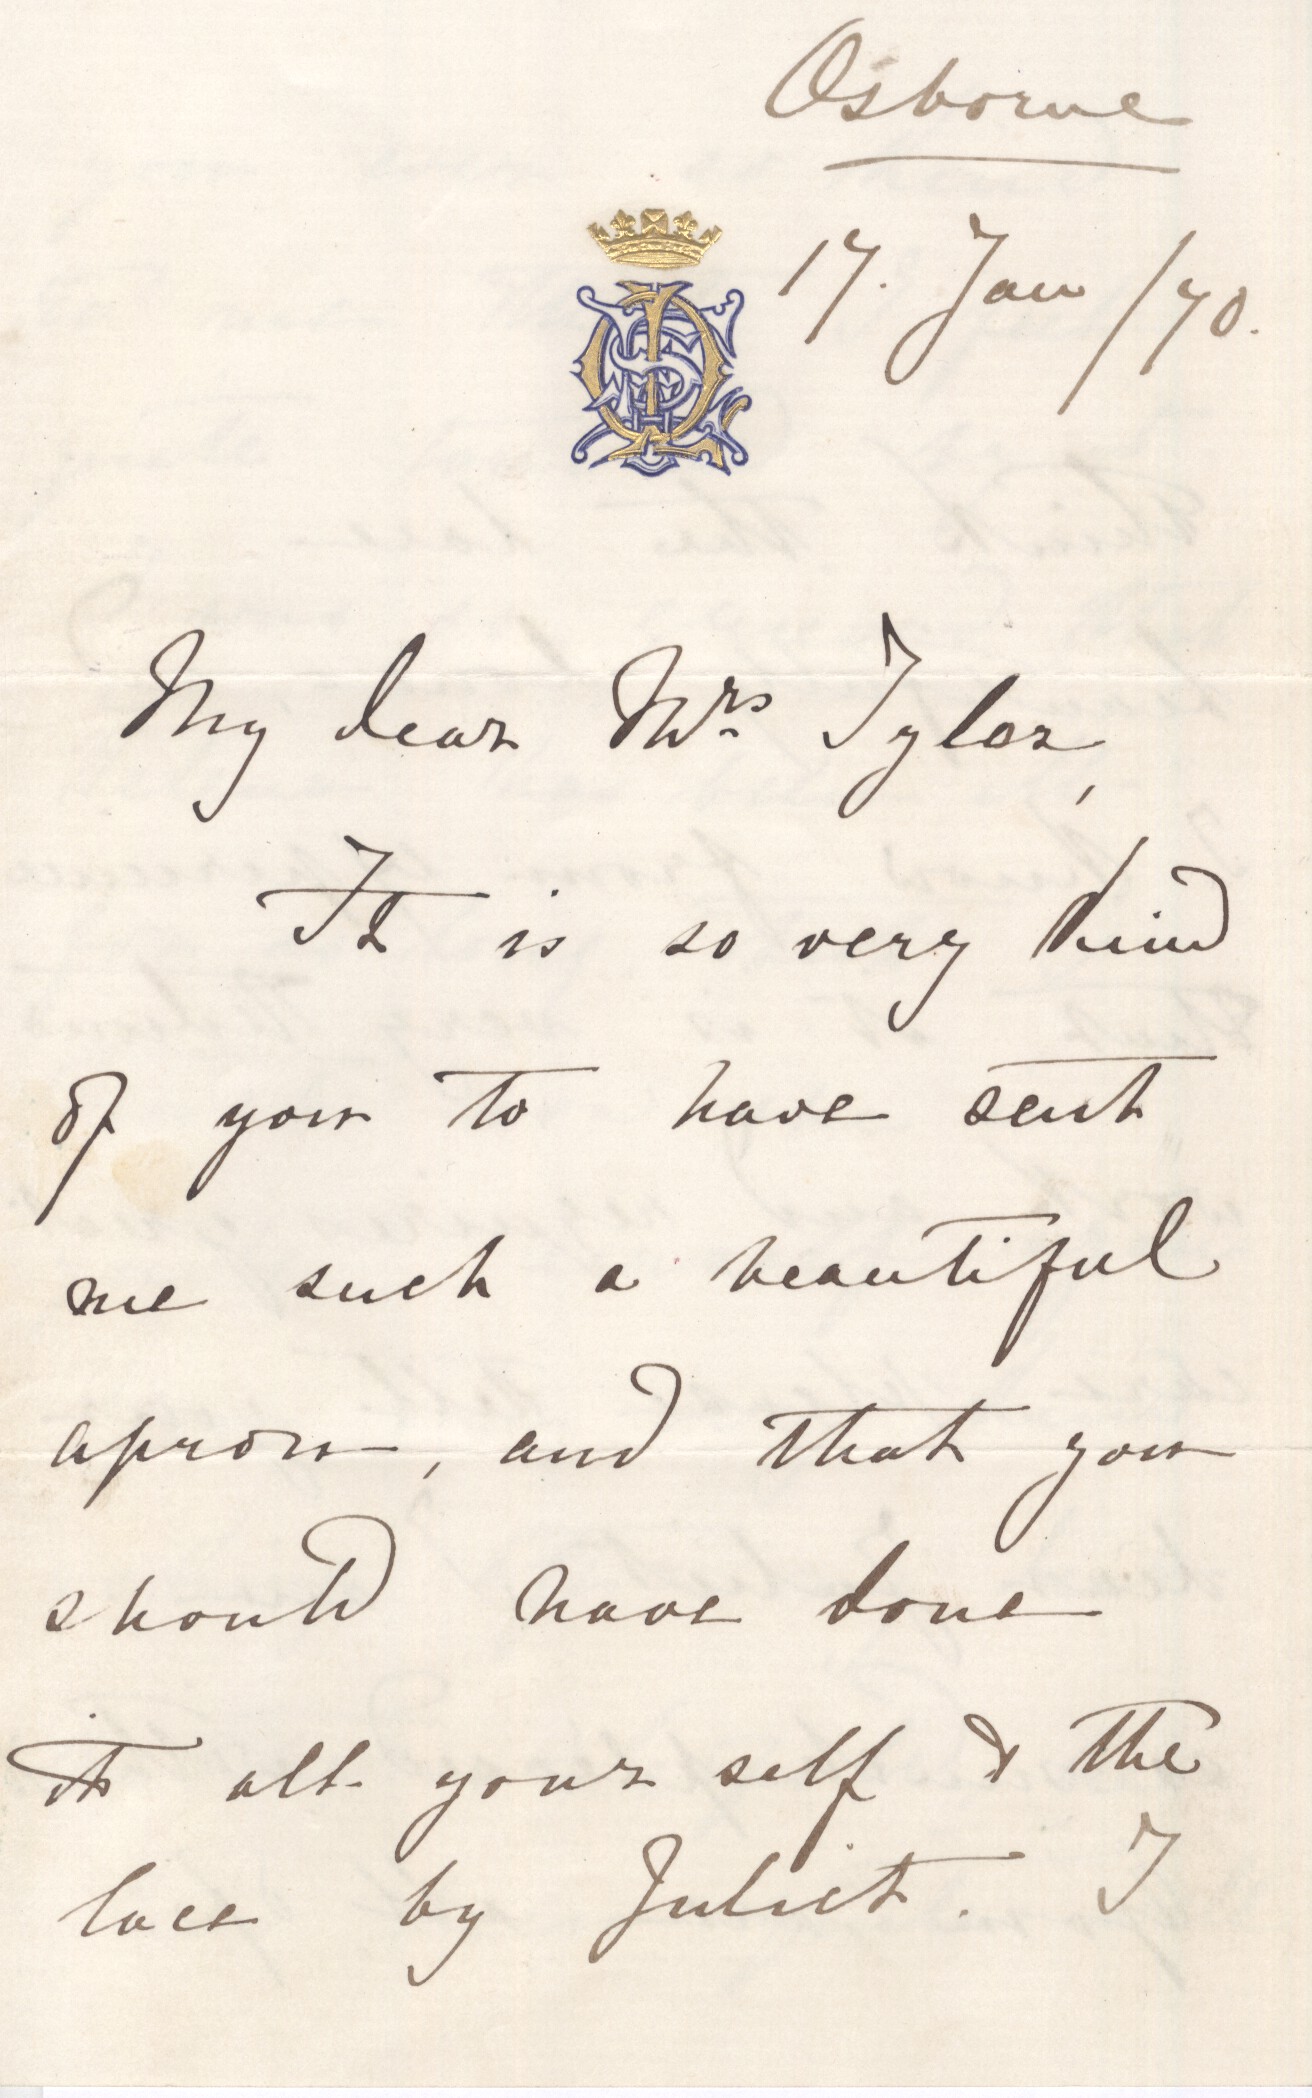 Osborne
17. Jan /70.
My dear Mrs Tyler,
It is so very kind
of you to have sent
me such a beautiful
apron, and that you
should have done
it all your self & the
lace by Juliet. I